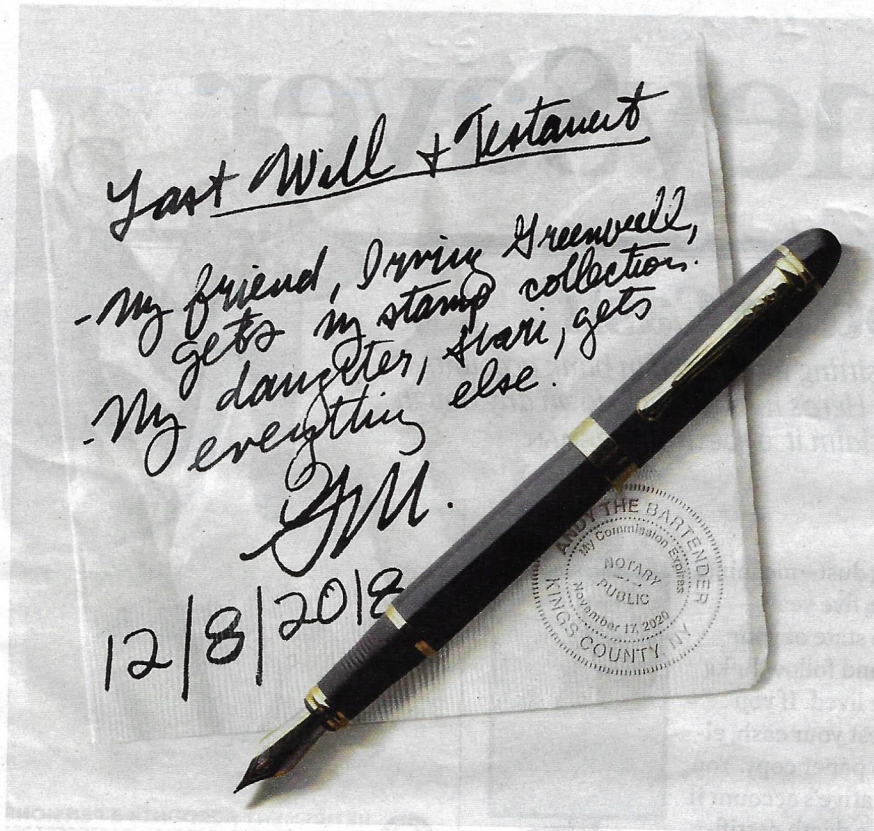 Last Will + Testament
- My friend, Irving Greenwell,
gets my stamp collection.
- My daughter, Shari, gets
everything else.
12/8/2018
ANDY THE BARTENDER
My Commission Expires
NOTARY
PUBLIC
November 17, 2020
KINGS COUNTY, NY